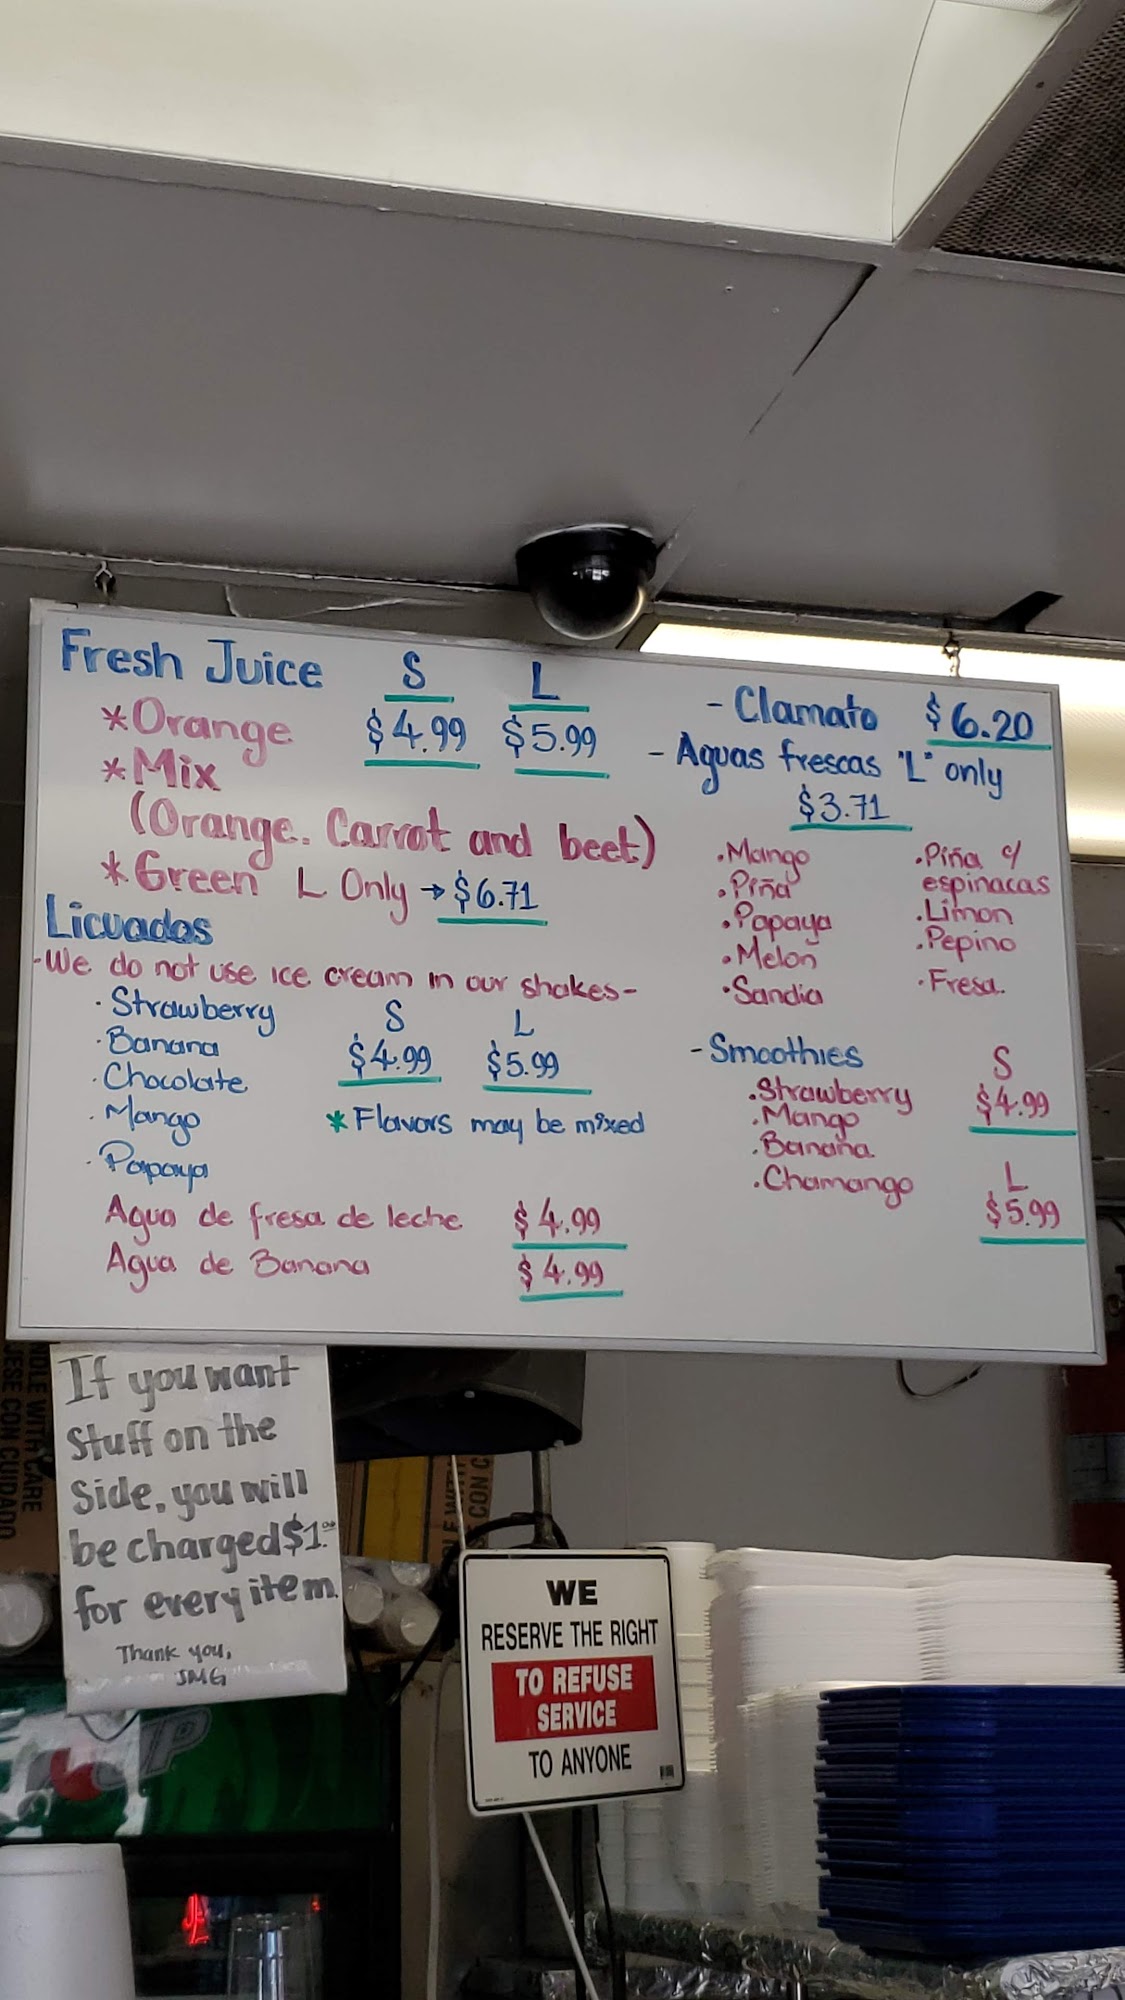 Fresh Juice S L
*Orange $4.99 $5.99
*Mix
(Orange. Carrot and beet)
*Green L Only → $6.71
Licuados
-We do not use ice cream in our shakes-
· Strawberry S L
· Banana $4.99 $5.99
· Chocolate
· Mango * Flavors may be mixed
· Papaya
Agua de fresa de leche $4.99
Agua de Banana $4.99
- Clamato $6.20
- Aguas frescas "L" only
$3.71
.Mango
.Piña
.Papaya
.Melon
.Sandia
.Piña c/
espinacas
.Limon
.Pepino
.Fresa.
- Smoothies S
.Strawberry $4.99
.Mango
.Banana
.Chamango L
$5.99
If you want
Stuff on the
Side, you will
be charged $1.00
for every item.
Thank you,
JMG
NDLE WITH CARE
JESE CON CUIDADO
CON C
WE
RESERVE THE RIGHT
TO REFUSE
SERVICE
TO ANYONE
UP